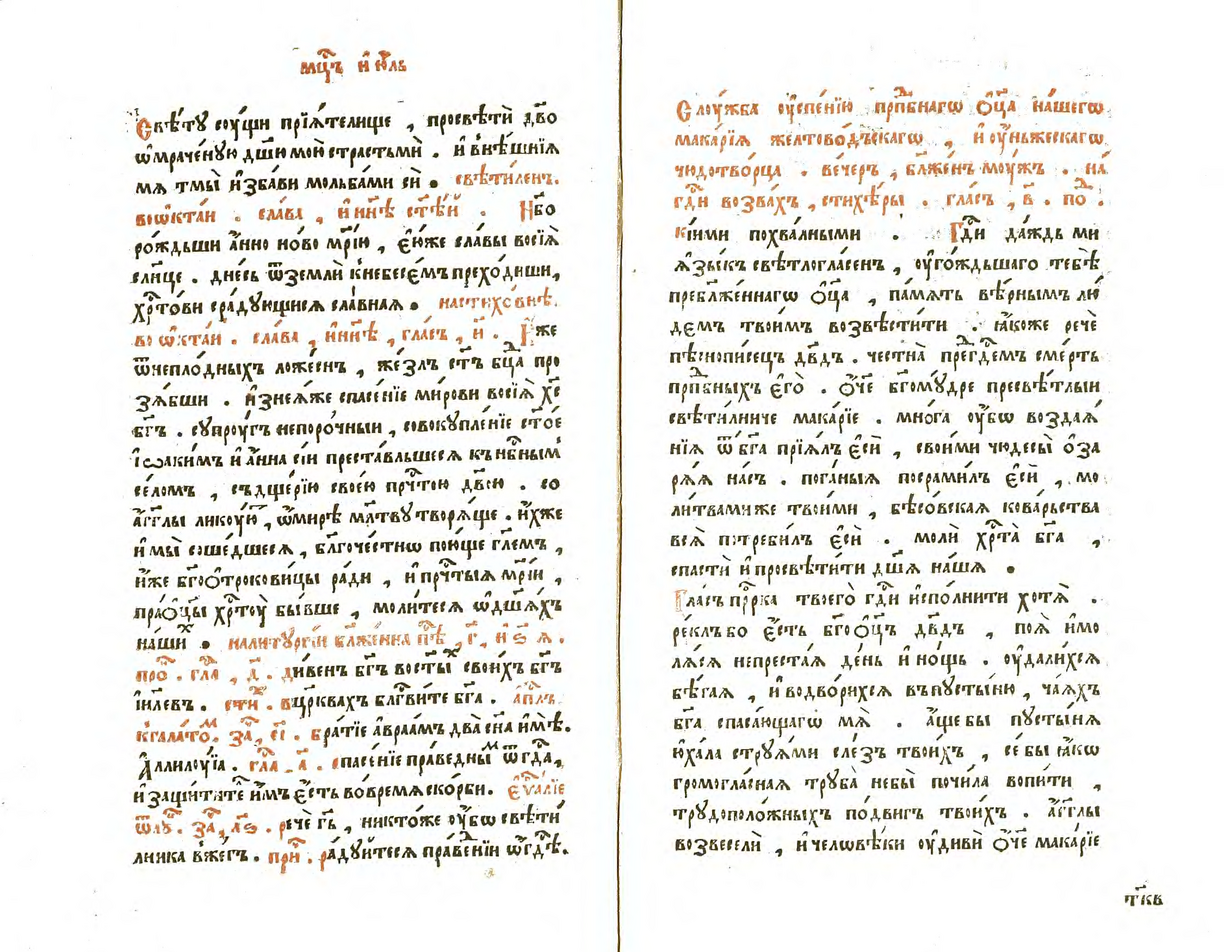 мцⷭ҇ъ и҆ю҆́ль
Свѣ́тꙋ сꙋ́щи прїѧ́телище , просвѣтѝ дв҃о
ѡ҆мраче́нꙋю дш҃ꙋ мою̀ страстьмѝ . и҆ внѣ́шнїѧ
мѧ тмы̀ и҆зба́ви мольба́ми сѝ . свѣти́ленъ.
во ѡ҆кта́и . сла́ва , и҆ нн҃ѣ ст҃ѣ́й . Ꙗ҆́ко
рождьши а҆́нно но́во мр҃і́ю , є҆ѧ́же сла́вы восїѧ̀
сл҃нце . дне́сь ѿ землѝ к̾ небесє́мъ прехо́диши,
хрⷭ҇то́ви сра́дꙋющисѧ сла́внаѧ . на стихо́внѣ.
во ѡ҆кта́и . сла́ва , и҆ нн҃ѣ , гла́съ , и҃ . И҆́же
ѿ непло́дныхъ ложе́снъ , же́злъ ст҃ъ бцⷣа про
зѧ́бши . и҆з̾ неѧ́же спасе́нїе ми́рови восїѧ̀ хс҃
бг҃ъ . сꙋпрꙋ́гъ непоро́чныи , совокꙋпле́нїе ст҃о́е
і҆ѡаки́мъ и҆ а҆́нна сі́и преста́вльшесѧ къ нбⷭ҇нымъ
се́ломъ , съ дще́рїю свое́ю прⷱ҇тою дв҃ою . со
а҆́гг҃лы ликꙋ́ю , ѡ҆ ми́рѣ мл҃твꙋ творѧ́ще . и҆́хже
и҆ мы̀ соше́дшесѧ , бл҃гоче́стнѡ пою́ще гл҃емъ ,
и҆́же бг҃оѻтрокови́цы ра́ди , и҆ прⷱ҇тыѧ мр҃і́и ,
пра́ѻц҃ы хрⷭ҇тꙋ̀ бы́вше , моли́тесѧ ѡ҆ дш҃а́хъ
на́шиⷯ . на литꙋргі́и бл҃же́нна пѣⷭ҇ , г҃ , и҆ ѕ҃ ѧ .
проⷦ҇ . глаⷭ҇ , д҃ . ди́венъ бг҃ъ во ст҃ыⷯ свои́хъ бг҃ъ
і҆и҃левъ . стиⷯ . въ цр҃квахъ бл҃гⷭ҇ви́те бг҃а . а҆пⷭ҇лъ.
к̾ гала́тоⷨ . заⷱ҇ , є҃і . бра́тїе а҆враа́мъ два̀ сн҃а и҆мѣ̀.
А҆ллилꙋ́їа . глаⷭ҇ , а҃ . спасе́нїе пра́ведныⷨ ѿ гдⷭ҇а,
и҆ защи́титель и҆̀мъ є҆́сть во вре́мѧ ско́рби. є҆ѵⷢ҇а́лїе
ѿ лꙋⷦ҇. заⷱ҇ , л҃ѕ . речѐ гдⷭ҇ь , никто́же ꙋ҆́бѡ свѣти́
лника в̾же́гъ. приⷱ҇ . ра́дꙋйтесѧ пра́веднїи ѡ҆ гдⷭ҇ѣ.
Слꙋ́жба ᲂу҆спе́нїю прпⷣбнагѡ ѻ҆ц҃а̀ на́шегѡ
мака́рїѧ желтово́дъскагѡ , и҆ ᲂу҆́ньжескагѡ
чюдотво́рца . ве́черъ , бл҃же́нъ мꙋ́жъ . на́
гдⷭ҇и возва́хъ , стихѣ́ры . гла́съ , в҃ . поⷣ :
кі́ими похва́льными . Гдⷭ҇и да́ждь ми
ѧ҆зы́къ свѣтлогла́сенъ , ᲂу҆гожdьшаго тебѣ̀
пребл҃же́ннагѡ ѻ҆ц҃а̀ , па́мѧть вѣ̑рнымъ лю
демъ твои́мъ возвѣсти́ти . ꙗ҆́коже речѐ
пѣснопи́сецъ дв҃дъ . честна̀ пре́д̾ гдⷭ҇емъ сме́рть
прпⷣбныхъ є҆гѡ̀ . ѻ҆́ч҃е бг҃омꙋ́дре пресвѣ́тлыи
свѣти́лниче мака́рїе . мно́га ᲂу҆́бѡ воздаѧ́
нїѧ ѿ бг҃а прїѧ́лъ є҆сѝ , свои́ми чюдесы̀ ѻ҆за
рѧ́ѧ на́съ . пога́ныѧ посрами́лъ є҆сѝ , мо
ли́твами же твои́ми , бѣсо́вскаѧ кова́рьства
всѧ̀ потреби́лъ є҆сѝ . молѝ хрⷭ҇та̀ бг҃а ,
спастѝ и҆ просвѣти́ти дш҃ѧ на́шѧ .
Гла́съ прⷪ҇рка твоегѡ̀ гдⷭ҇и и҆спо́лнити хотѧ̀ .
ре́клъ бо є҆́сть бг҃оѻ҆ц҃ъ дв҃дъ , поѧ̀ и҆ мо
лѧ́сѧ непреста́ѧ де́нь и҆ но́щь . ᲂу҆дали́хсѧ
бѣ́гаѧ , и҆ водвори́хсѧ въ пꙋсты́ню , ча́ѧхъ
бг҃а спаса́ющагѡ мѧ̀ . а҆́ще бы пꙋсты́нѧ
ю҆ха́ла стрꙋѧ́ми сле́зъ твои́хъ , се́ бы ꙗ҆́кѡ
громогла́снаѧ трꙋба̀ не бы̀ почи́ла вопи́ти ,
трꙋдополо́жныхъ по́двигъ твои́хъ . а҆́гг҃лы
возвеселѝ , и҆ человѣ́ки ᲂу҆дивѝ ѻ҆́ч҃е мака́рїе
т҃кв